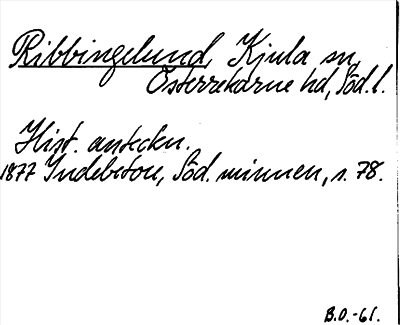 Ribbingelund, Kjula sn,
Österrekarne hd, Söd.l.
Hist. anteckn.
1877 Indebetou, Söd. minnen, s. 78.
B.O.-61.